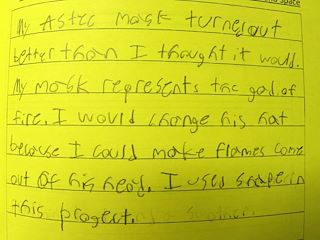 space
My Aztec mask turned out
better than I thought it would.
My mask represents the god of
fire. I would change his hat
because I could make flames come
out of his head. I used shape in
this progect.